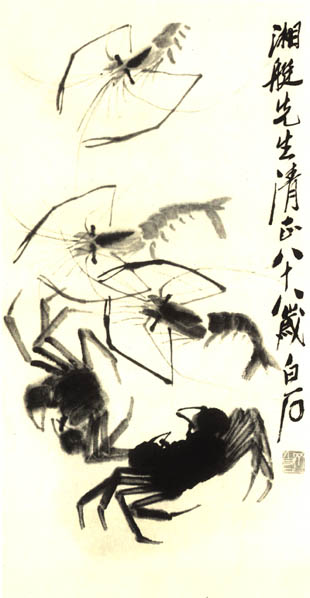 湘艇先生清正八十八歲白石